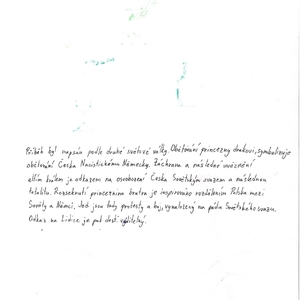 Příběh byl napsán podle druhé světové války. Obětování princezny drakovi, symbolizuje
obětování Česka Nacistickému Německu. Záchrana a následné uvěznění
zlým králem je odkazem na osvobození Česka Sovětským svazem a následnou
totalitu. Rozseknutí princeznina bratra je inspirováno rozdělením Polska mezi
Sověty a Němci. Ještě jsou tady protesty a boj, vynaložený na půdu Sovětského svazu.
Odkaz na Lidice je pak dosti viditelný.